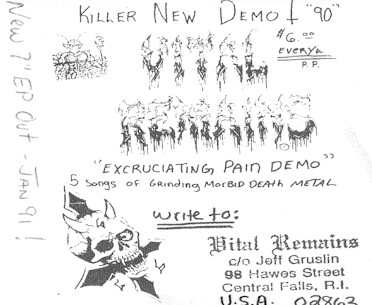 KILLER NEW DEMO "90"
$6.00
EVERYW
P.P.
VITAL
REMAINS
"EXCRUCIATING PAIN DEMO"
5 SONGS OF GRINDING MORBID DEATH METAL
WRITE TO:
Vital Remains
c/o Jeff Gruslin
98 Hawes Street
Central Falls, R.I.
U.S.A. 02863
New 7" EP OUT - JAN 91!